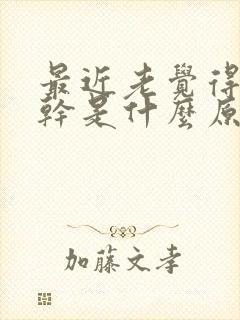 最近老覺得
幹是什麼原
加藤文孝